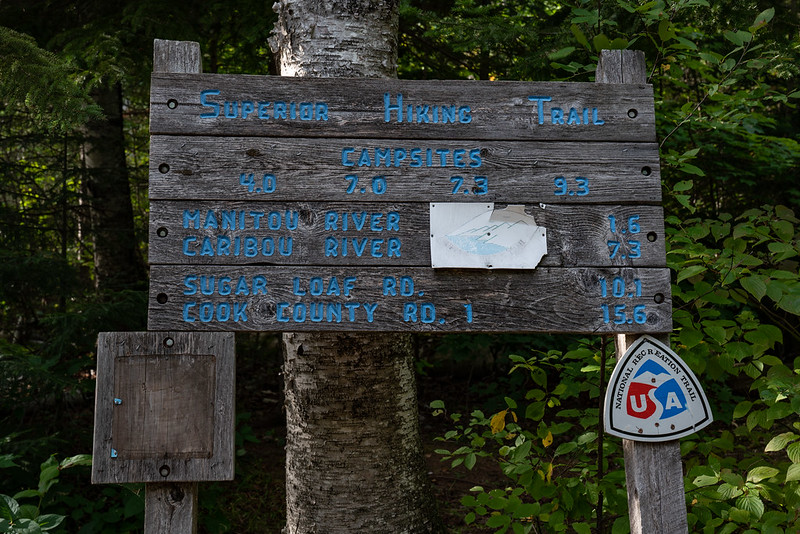 SUPERIOR HIKING TRAIL
CAMPSITES
4.0 7.0 7.3 9.3
MANITOU RIVER 1.6
CARIBOU RIVER 7.3
SUGAR LOAF RD. 10.1
COOK COUNTY RD. 1 15.6
NATIONAL RECREATION TRAIL
USA